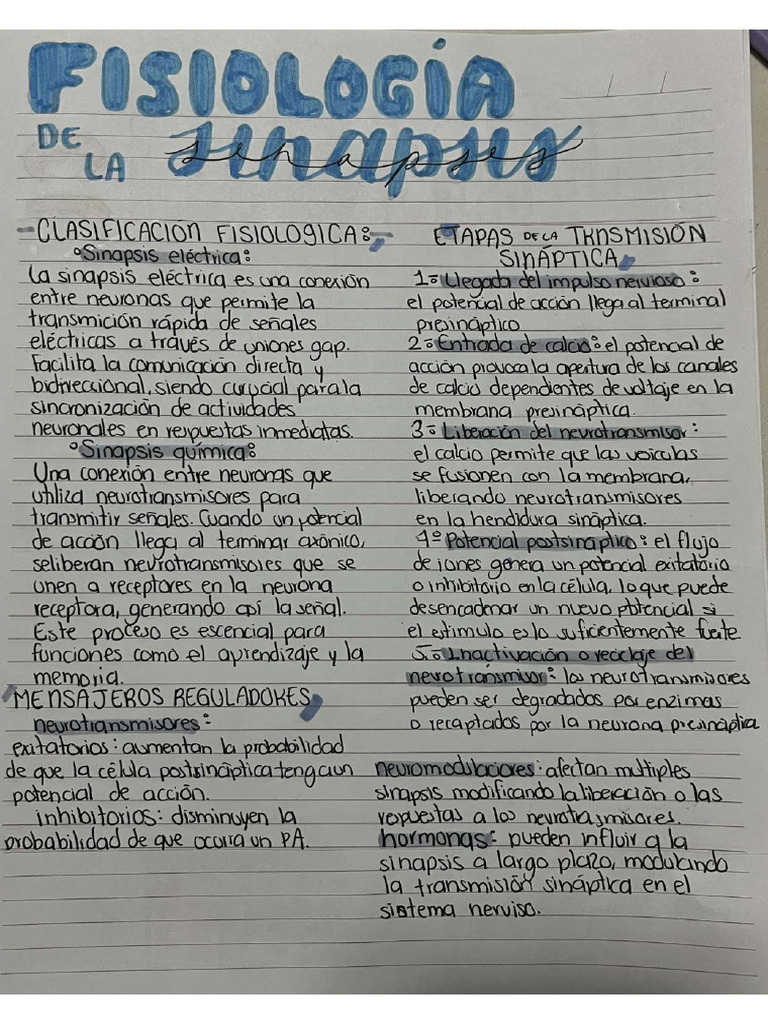 FISIOLOGÍA
DE LA sinapsis
- CLASIFICACIÓN FISIOLOGICA:
°Sinapsis eléctrica:
La sinapsis eléctrica es una conexión
entre neuronas que permite la
transmición rápida de señales
eléctricas a través de uniones gap.
Facilita la comunicación directa y
bidireccional, siendo curucial para la
sincronización de actividades
neuronales en respuestas inmediatas.
°Sinapsis química:
Una conexión entre neuronas que
utiliza neurotransmisores para
transmitir señales. Cuando un potencial
de acción llega al terminar axónico,
seliberan neurotransmisores que se
unen a receptores en la neurona
receptora, generando así la señal.
Este proceso es escencial para
funciones como el aprendizaje y la
memoria.
MENSAJEROS REGULADORES
neurotransmisores:
exitatorios: aumentan la probabilidad
de que la célula postsináptica tenga un
potencial de acción.
inhibitorios: disminuyen la
probabilidad de que ocurra un PA.
ETAPAS DE LA TRNSMISIÓN
SINÁPTICA
1º Llegada del impulso nervioso:
el potencial de acción llega al terminal
presináptico
2º Entrada de calcio: el potencial de
acción provoca la apertura de los canales
de calcio dependientes de voltaje en la
membrana presináptica.
3º Liberación del neurotransmisor:
el calcio permite que las vesiculas
se fusionen con la membrana,
liberando neurotransmisores
en la hendidura sináptica.
4º Potencial postsináptico: el flujo
de iones genera un potencial exitatorio
o inhibitorio en la célula, lo que puede
desencadenar un nuevo potencial si
el estimulo es lo suficientemente fuerte
5º Inactivación o reciclaje del
neurotransmisor: los neurotransmisores
pueden ser degradados por enzimas
o recaptados por la neurona presináptica
neuromodulaciores: afectan multiples
sinapsis modificando la liberación o las
respuestas a los neurotrasmisores.
hormonas: pueden influir a la
sinapsis a largo plazo, modulando
la transmisión sináptica en el
sistema nerviso.